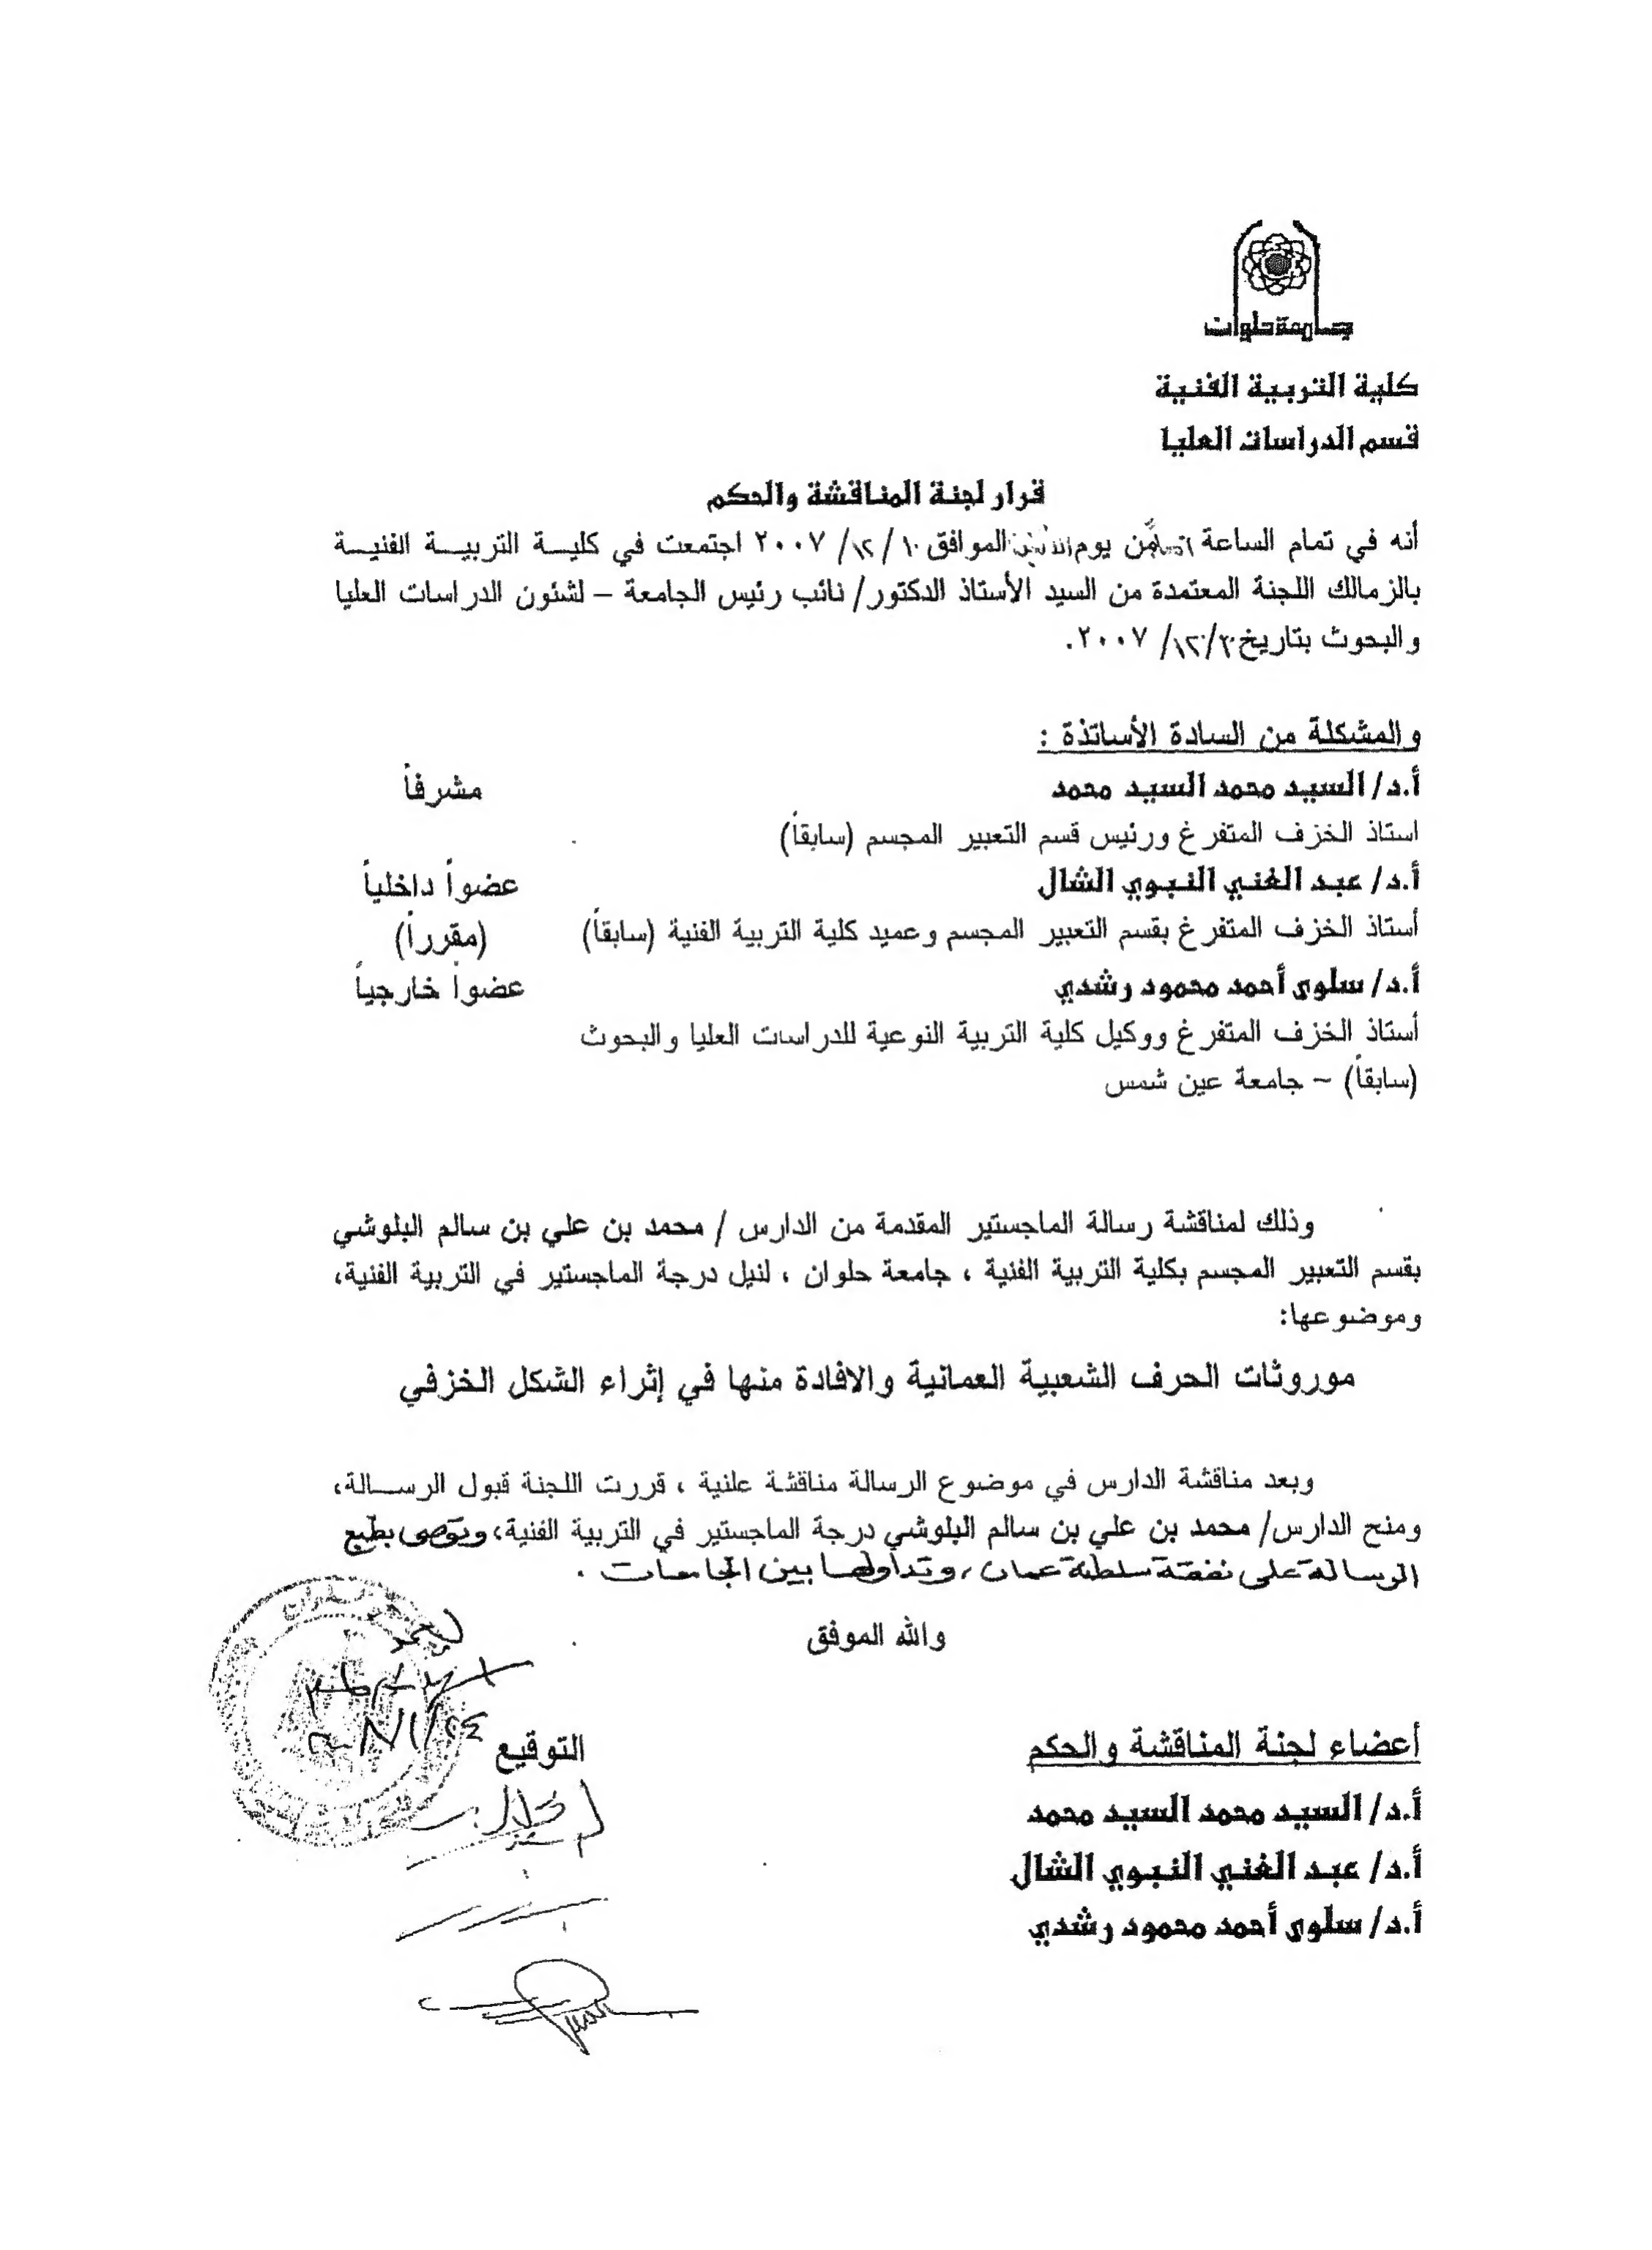 جامعة حلوان
كلية التربية الفنية
قسم الدراسات العليا
قرار لجنة المناقشة والحكم
أنه في تمام الساعة من يوم الاثنين الموافق ١٠ / ١٢/ ٢٠٠٧ اجتمعت في كلية التربية الفنية
بالزمالك اللجنة المعتمدة من السيد الأستاذ الدكتور/ نائب رئيس الجامعة – لشئون الدراسات العليا
والبحوث بتاريخ /١٢/ ٢٠٠٧.
والمشكلة من السادة الأساتذة :
أ.د/ السيد محمد السيد محمد مشرفاً
استاذ الخزف المتفرغ ورئيس قسم التعبير المجسم (سابقاً)
أ.د/ عبد الغني النبوي الشال عضواً داخلياً
أستاذ الخزف المتفرغ بقسم التعبير المجسم وعميد كلية التربية الفنية (سابقاً) (مقرراً)
أ.د/ سلوى أحمد محمود رشدي عضواً خارجياً
أستاذ الخزف المتفرغ ووكيل كلية التربية النوعية للدراسات العليا والبحوث
(سابقاً) – جامعة عين شمس
وذلك لمناقشة رسالة الماجستير المقدمة من الدارس / محمد بن علي بن سالم البلوشي
بقسم التعبير المجسم بكلية التربية الفنية ، جامعة حلوان ، لنيل درجة الماجستير في التربية الفنية،
وموضوعها:
موروثات الحرف الشعبية العمانية والافادة منها في إثراء الشكل الخزفي
وبعد مناقشة الدارس في موضوع الرسالة مناقشة علنية ، قررت اللجنة قبول الرسالة،
ومنح الدارس/ محمد بن علي بن سالم البلوشي درجة الماجستير في التربية الفنية، ويوصى بطبع
الرسالة على نفقة سلطنة عمان ، وتداولها بين الجامعات .
والله الموفق
أعضاء لجنة المناقشة والحكم التوقيع
أ.د/ السيد محمد السيد محمد
أ.د/ عبد الغني النبوي الشال
أ.د/ سلوى أحمد محمود رشدي